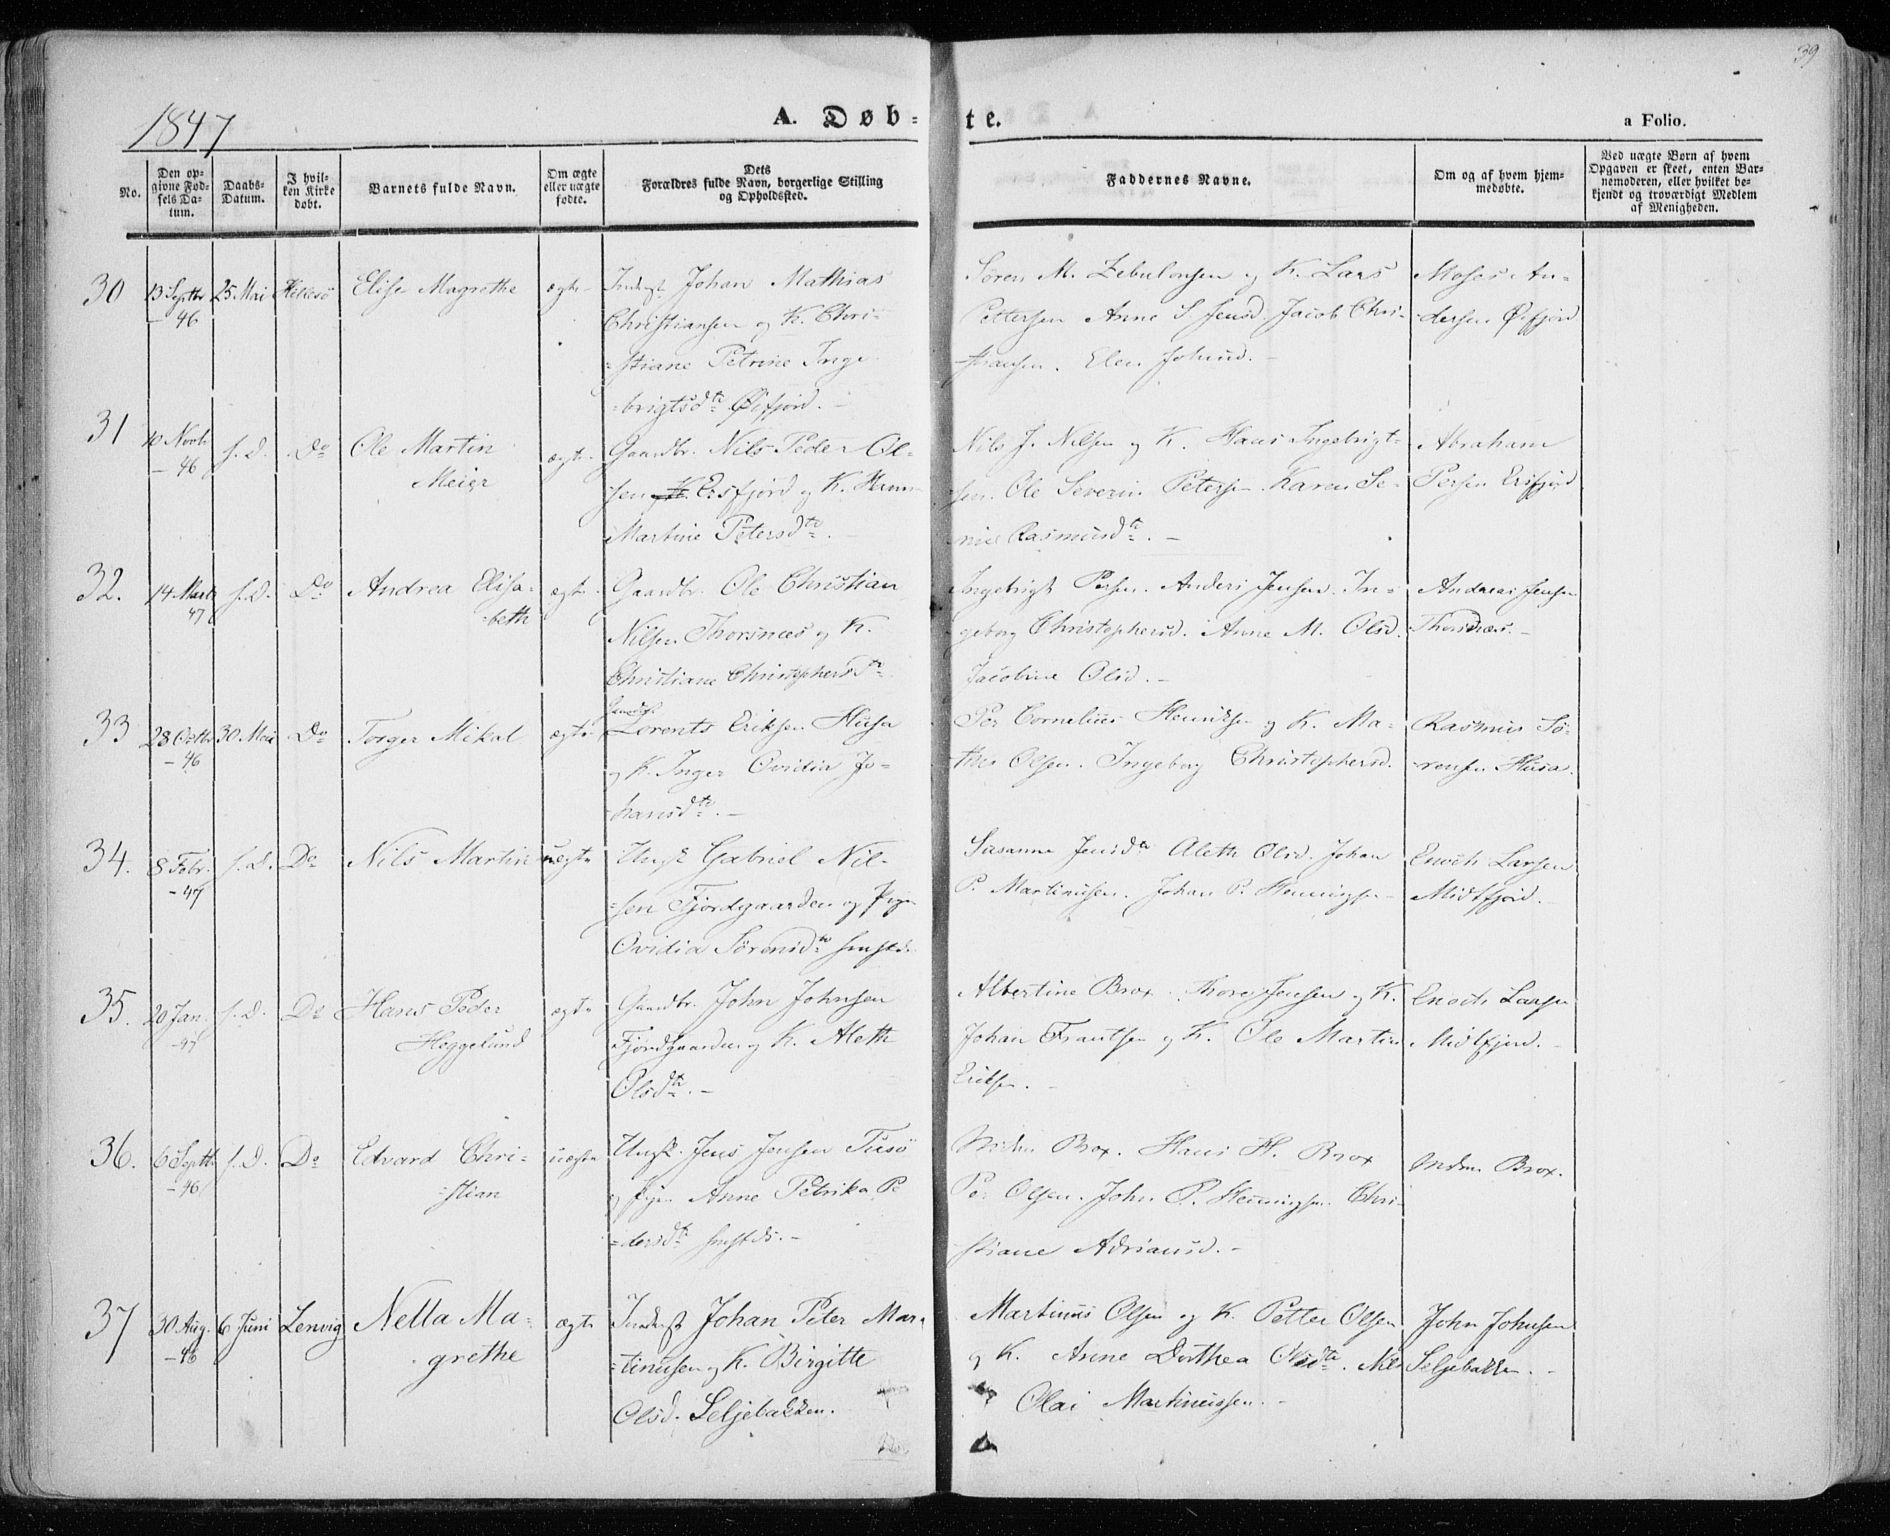 39
1847
A. Døb-
te.
a Folio.
No.
Den op-
givne Fød-
sels Da-
tum.
Daabs-
Datum.
I hvil-
ken Kirke
døbt.
Barnets fulde Navn.
Om ægte
eller uægte
fødte.
Dets
Forældres fulde Navn, borgerlige Stilling
og Opholdssted.
Faddernes Navne.
Om og af hvem hjem-
medøbte.
Ved uægte Børn af hvem
Opgaven er skeet, enten Bar-
nemoderen, eller hvilket be-
kjendt og troværdigt Medlem
af Menigheden.
30
13 Septbr
- 46
25 Mai
Hillesø
Elise Magrethe
ægte
Inderst Johan Mathias
Christiansen og K. Chri-
=stiane Petrine Inge
=brigtsdtr Øifjord. -
Søren M. Zebulonsen og K. Lars
Pettersen Anne S Jensd. Jacob Chri-
stiansen. Elen Johnsd. -
Moses An-
dersen Øifjord
31
10 Novbr
- 46
s. D.
Do
Ole Martin
Meier
ægte
Gaardbr. Nils Peder Ol-
sen Ersfjord og K.
Martine Petersdtr. -
Nils J. Nilsen og K. Hans Ingebrigt-
sen. Ole Severin Petersen. Karen Se-
Rasmusdtr. -
Abraham
Persen Ersfjord
32.
14 Marts
47
s. D.
Do
Andrea Elisa-
=beth
ægte
Gaardbr. Ole Christian
Nilsen Thorsnæs og K.
Christiane Christophersdtr
Ingebrigt Persen. Anders Jensen. In-
geborg Christophersd. Anne M. Olsd.
Jacobine Olsd. -
Andreas Jensen
Thorsnæs. -
33
28 Octbr
- 46
30 Mai
Do
Torger Mikal
ægte
Gaardbr.
Lorents Eriksen Husa
og K. Inger Ovidia Jo-
=hansdtr. -
Per Cornelius Henriksen og K. Ma-
this Olsen. Ingeborg Christophersd.
Rasmus Sø-
rensen Husa.
34.
8 Febr.
- 47
s. D.
Do
Nils Martin
uægte
Ungk. Gabriel Nil-
=sen Fjordgaarden og Pigen
Ovidia Sørensdtr smsteds
Susanne Jensdtr Aleth Olsd. Johan
P. Martinusen. Johan P. Henningsen
Enoch Larsen
Midtfjord. -
35.
20 Jan.
- 47
s. D.
Do
Hans Peder
Heggelund
ægte
Gaardbr. John Johnsen
Fjordgaarden og K. Aleth
Olsdtr. -
Albertine Brox. Thore Jensen og K.
Johan Frantsen og K. Ole Martin
Eriksen. -
Enoch Larsen
Midtfjord. -
36.
6 Septbr
- 46
s. D.
Do
Edvard Chri-
=stian
uægte
Ungk. Jens Jensen Tusø
og Pigen Anne Petrika Pe
=dersdtr smsteds. -
Brox. Hans H. Brox
Per Olsen. John P. Henningsen Chri-
stiane Adriansd. -
Brox.
37
30 Aug.
- 46
6 Juni
Lenvig
Nella Ma-
grethe
ægte
Inderst Johan Peter Mar-
=tinusen og K. Birgitte
Olsd. Seljebakken.
Martinus Olsen og K. Petter Olsen
og K. Anne Dorthea Olsdtr. Nils
Olai Martinussen. -
John Johnsen
Seljebakken. -